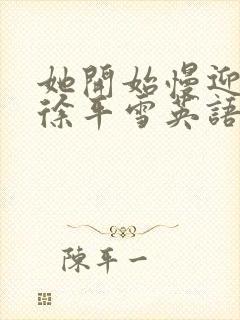 她開始慢迎
徐平雪英語
陳平一